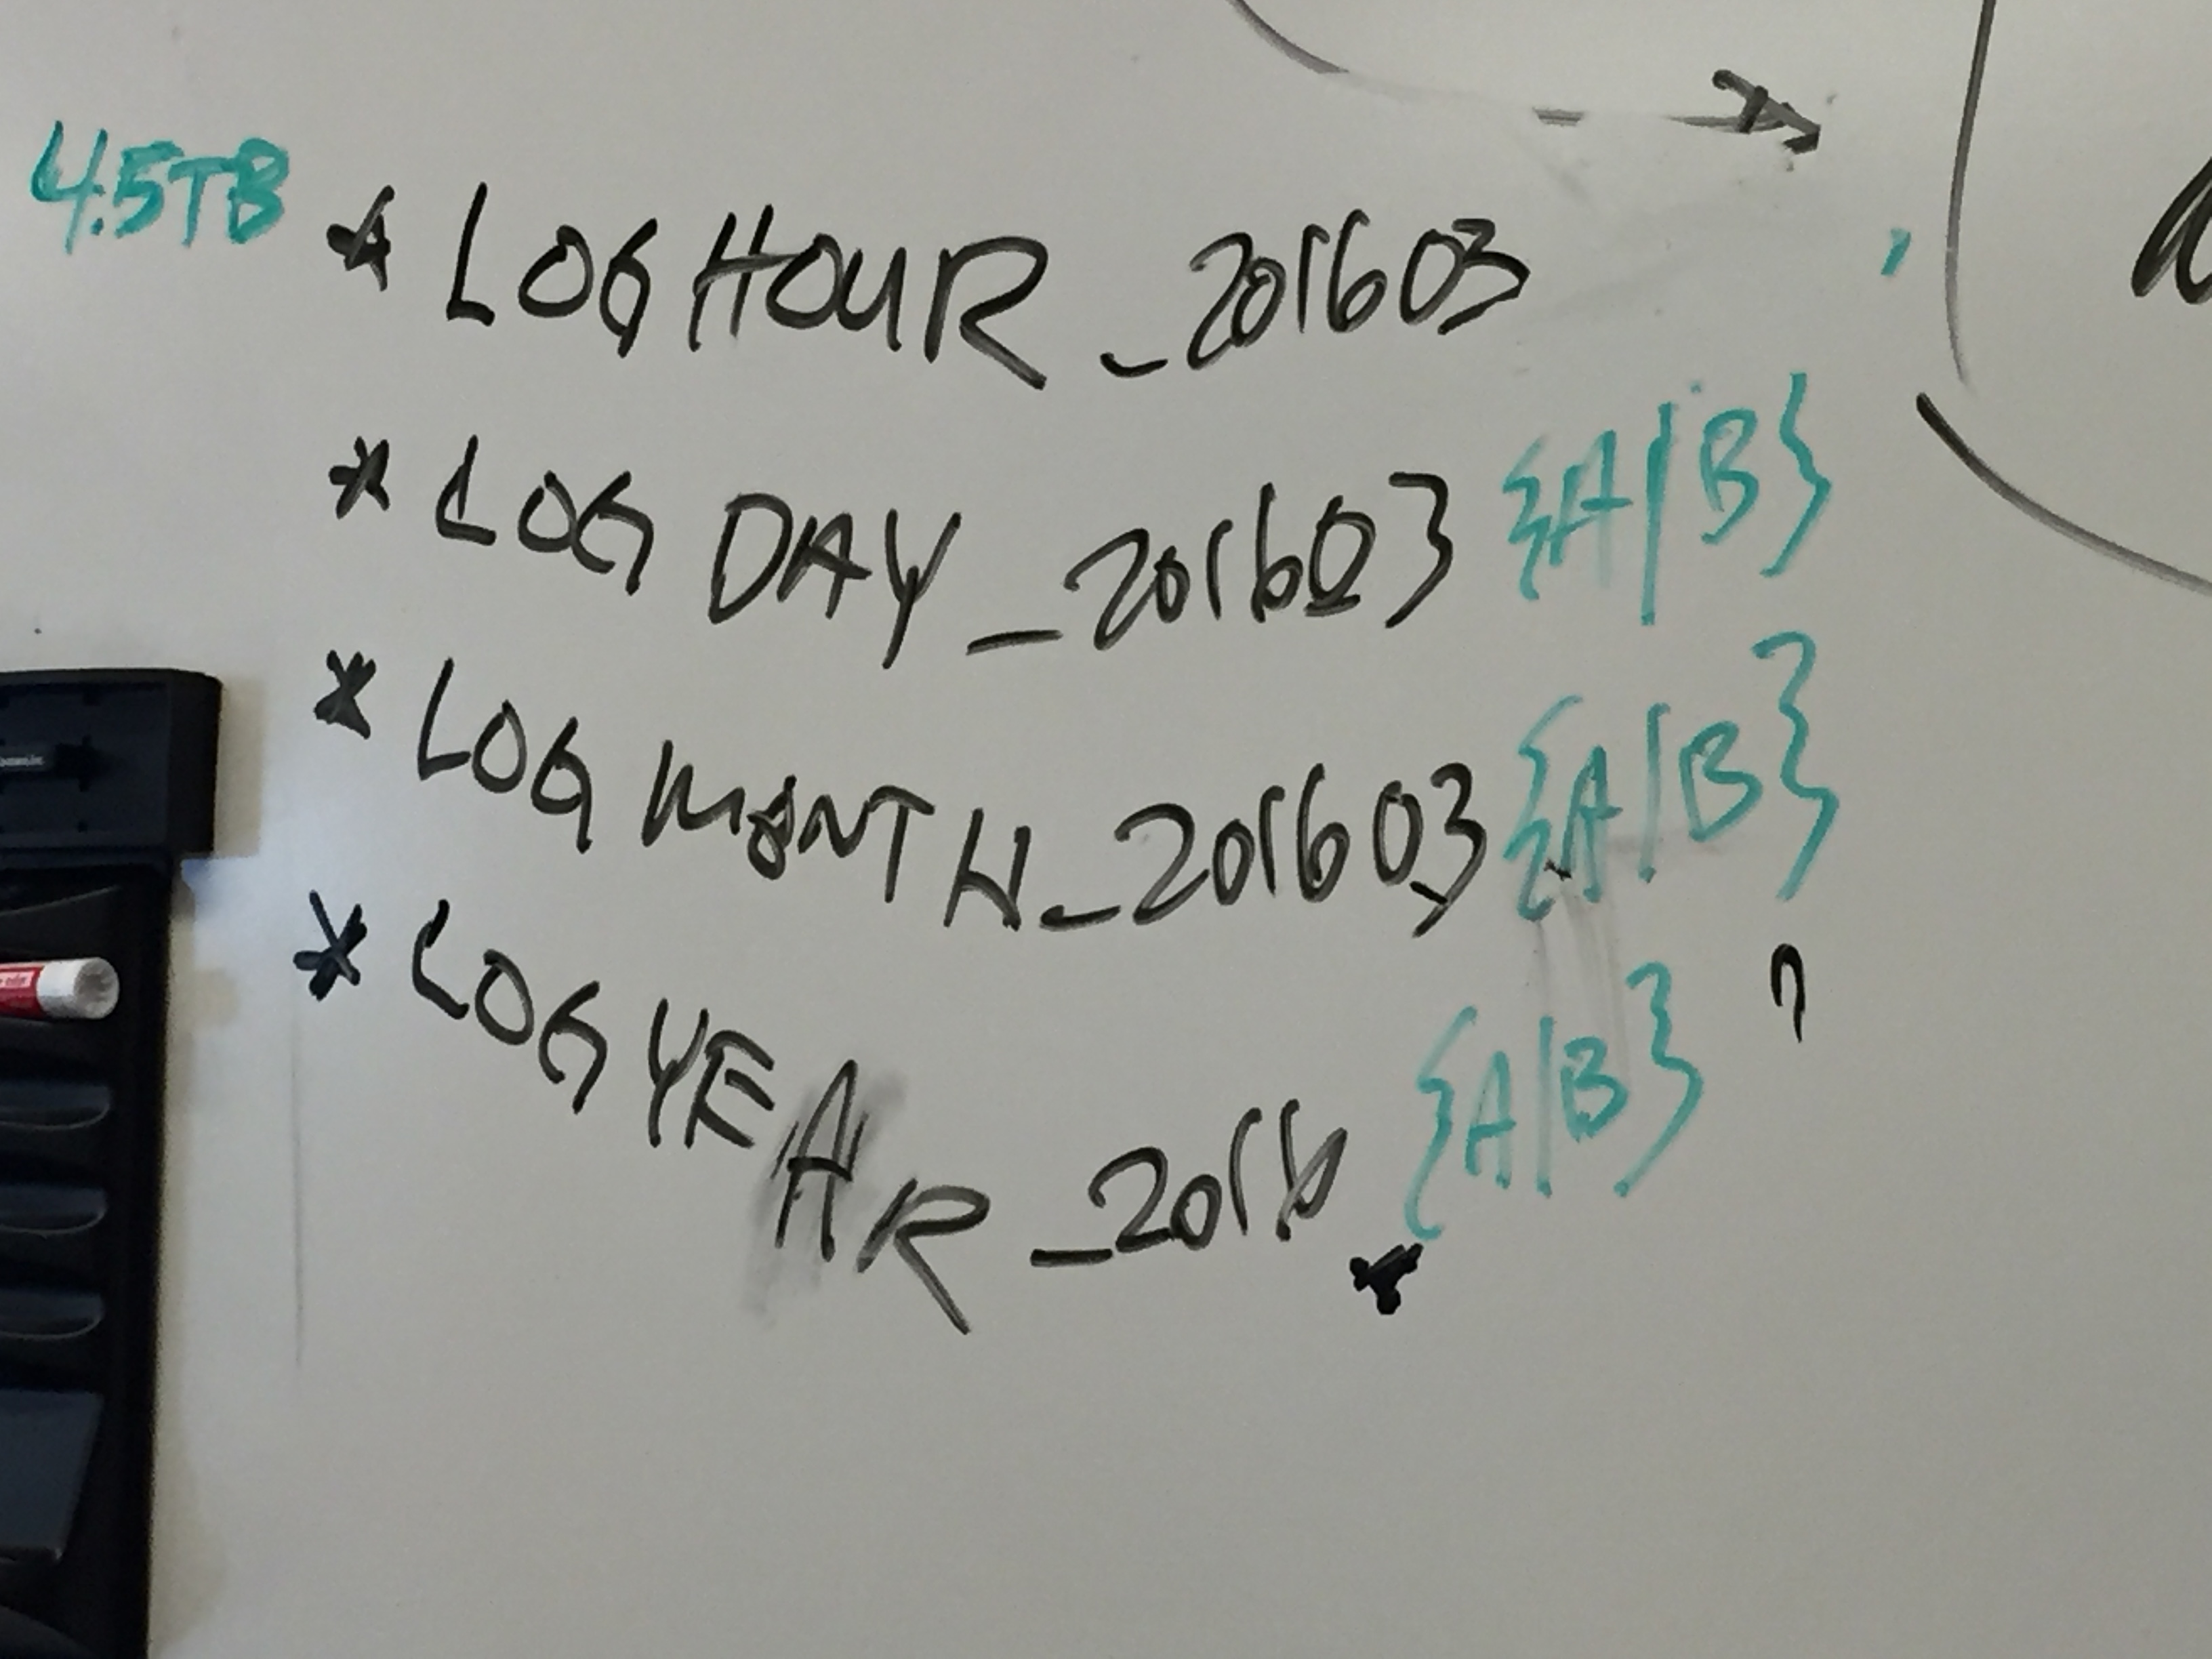 4.5TB * LOGHOUR_201603
* LOGDAY_201603 {A|B}
* LOGMONTH_201603 {A|B}
* LOGYEAR_2016 {A|B}